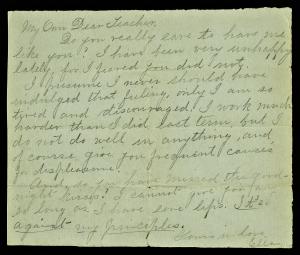 My Own Dear Teacher,
Do you really care to have me
like you? I have been very unhappy
lately, for I feared you did not.
I presume I never should have
indulged that feeling, only I am so
tired and discouraged. I work much
harder than I did last term, but I
do not do well in anything, and
of course give you frequent causes
for displeasure.
And so you have missed the good-
night kisses? I cannot give you any
so long as I have sore lips. It's
against my principles.
Yours in love,
Ella